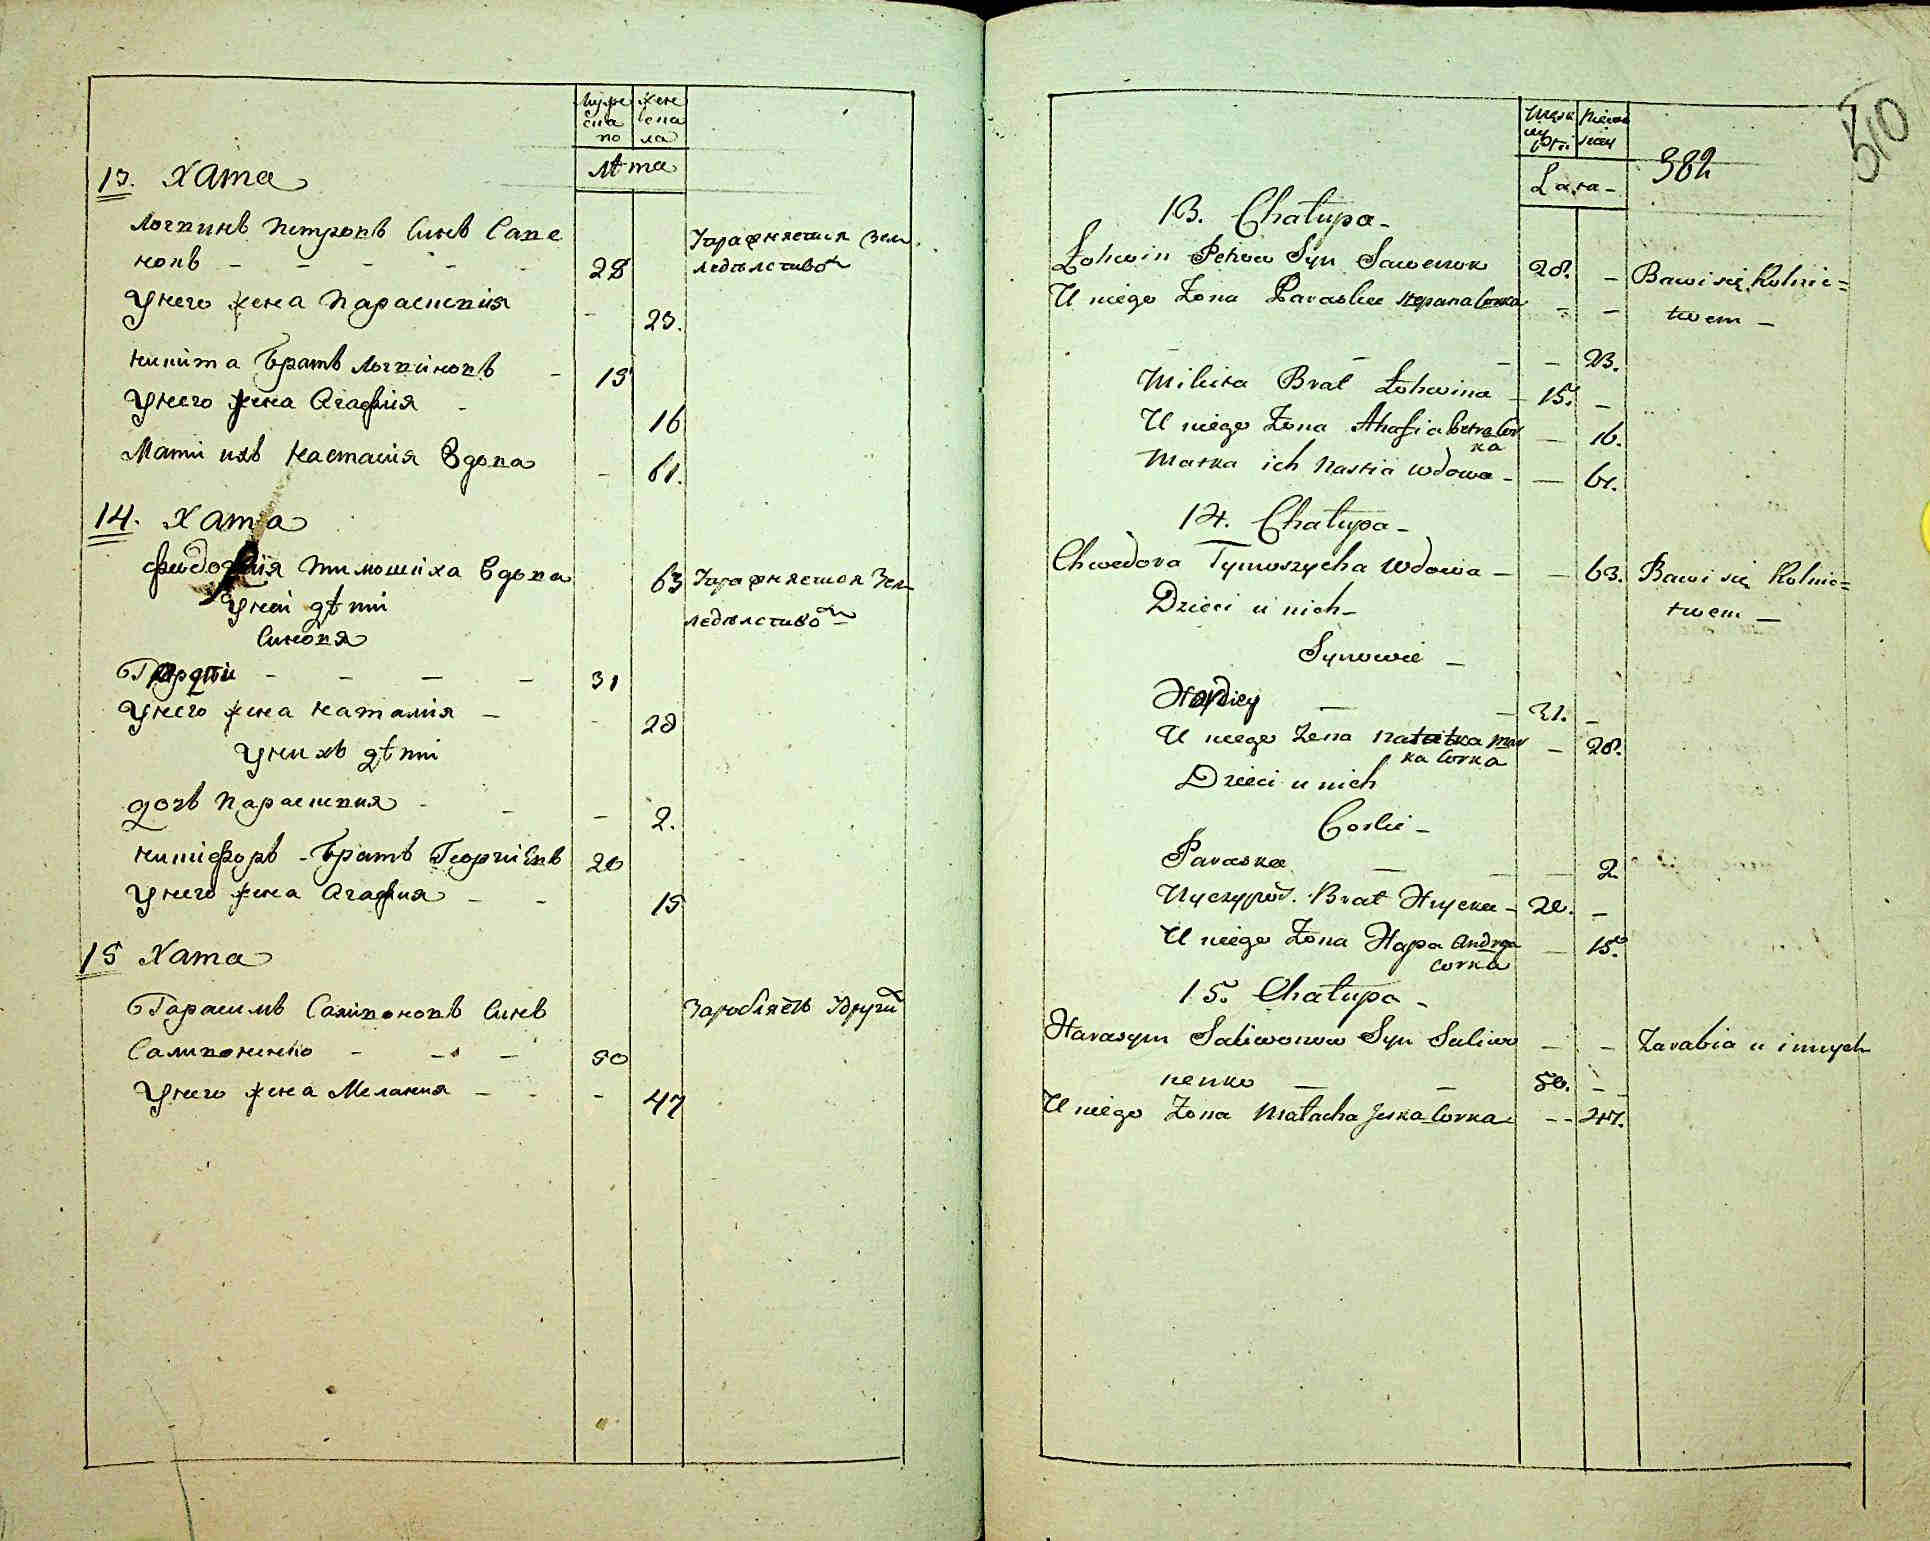 Муже
ска
по
жен
ска
ла
Лѣта
13. Хата
Логвинъ Петровъ Синъ Саве
новъ - - - - -
28
Упражняется Зем
ледѣлство
Унего жена Параскивия
- 23.
Никита Братъ Логвиновъ - 15
Унего жена Агафия - 16
Мати ихъ Настасия Вдова - 61.
14. Хата
Тимошиха Вдова 63 Упражняется Зем
Уней дѣти
ледѣлство
Синовя
- - - - 31
Унего жена Наталия - - 28
Унихъ дѣти
дочь Параскивия - - - 2.
Никифоръ - Братъ Георгиевъ 20
Унего жена Агафия - - 15
15 Хата
Гарасимъ Саливоновъ Синъ
Заробляетъ Удруги
Саливоненко - - - 50
Унего жена Мелания - - - 47
510
Lata -
382
13. Chałupa -
Łohwin Petrow Syn Sawenok 28. - Bawi się Rolnic=
twem -
U niego Żona Paraska Stepana Corka - -
- - - - 23.
Mikita Brat Łohwina - 15. -
U niego Żona Ahafia Petra Cor
ka - 16.
Matka ich Nastia Wdowa - - 61.
14. Chałupa -
Chwedora Tymoszycha Wdowa - - 63. Bawi się Rolnic=
twem -
Dzieci u nich -
Synowie -
Hordiey - - 31. -
U niego Żona Natałka Mar
ka Corka - 28.
Dzieci u nich
Corki -
Paraska - - - 2
Nyczypor. Brat Hrycka - 20. -
U niego Żona Hapa Andrea
Corka - 15.
15. Chałupa -
Harasym Saliwonow Syn Saliwo - - Zarabia u innych
nenko - - 50. -
U niego Żona Małacha Jeska Corka - - 47.